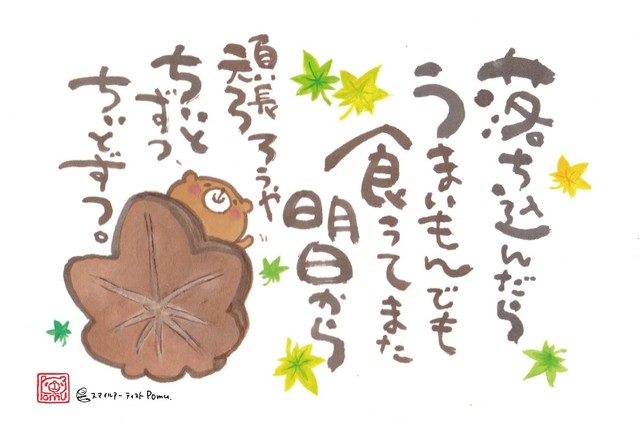 落ち込んだら
うまいもんでも
食ってまた
明日から
頑張ろうや
ちぃとずつ、
ちぃとずつ。
スマイルアーティスト Pomu.
Pomu